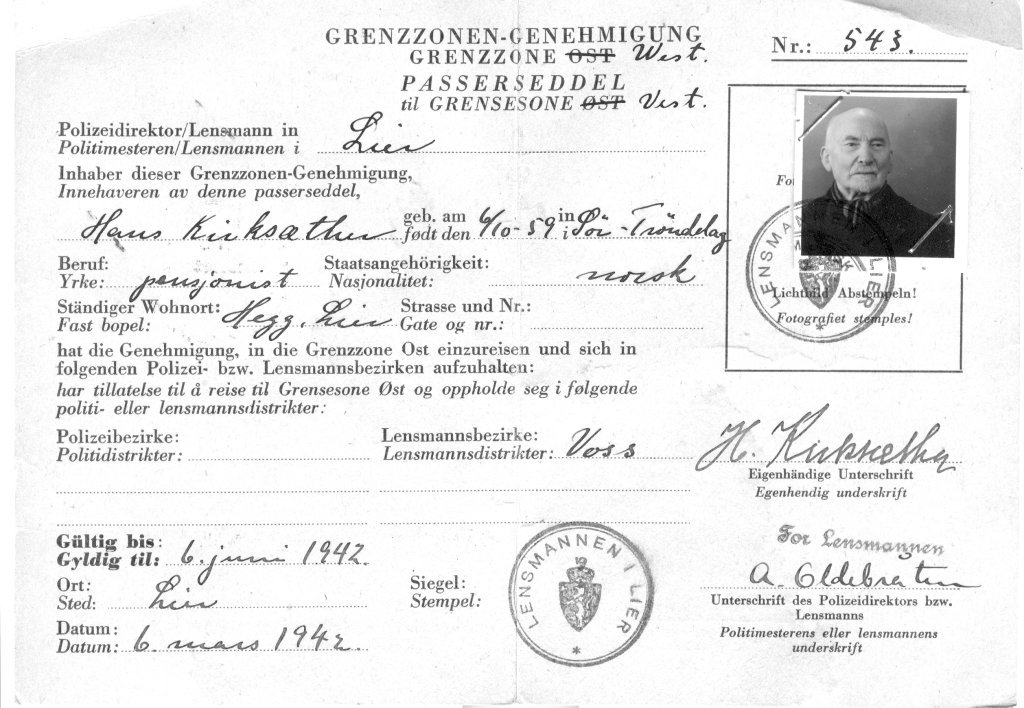 GRENZZONEN-GENEHMIGUNG
GRENZZONE OST West.
PASSERSEDDEL
til GRENSESONE ØST Vest.
Nr.: 543.
Polizeidirektor/Lensmann in
Politimesteren/Lensmannen i Lier
Inhaber dieser Grenzzonen-Genehmigung,
Innehaveren av denne passerseddel,
Hans Kirksæther geb. am født den 6/10-59 in i Sör-Tröndelag
Beruf: Staatsangehörigkeit:
Yrke: pensjonist Nasjonalitet: norsk
Ständiger Wohnort: Strasse und Nr.:
Fast bopel: Hegg, Lier Gate og nr.:
hat die Genehmigung, in die Grenzzone Ost einzureisen und sich in
folgenden Polizei- bzw. Lensmannsbezirken aufzuhalten:
har tillatelse til å reise til Grensesone Øst og oppholde seg i følgende
politi- eller lensmannsdistrikter:
Polizeibezirke: Lensmannsbezirke:
Politidistrikter: Lensmannsdistrikter: Voss
Gültig bis:
Gyldig til: 6. juni 1942.
Ort: Siegel:
Sted: Lier Stempel:
Datum:
Datum: 6. mars 1942.
LENSMANNEN I LIER
*
LENSMANNEN I LIER
Lichtbild Abstempeln!
Fotografiet stemples!
*
H. Kirksæther
Eigenhändige Unterschrift
Egenhendig underskrift
For Lensmannen
A. Oldebraten
Unterschrift des Polizeidirektors bzw.
Lensmanns
Politimesterens eller lensmannens
underskrift